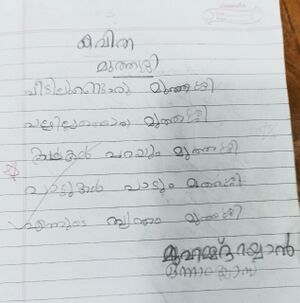 കവിത
മുത്തശ്ശി
വീട്ടിലുണ്ടൊരു മുത്തശ്ശി
പല്ലില്ലാത്തൊരു മുത്തശ്ശി
കഥകൾ പറയും മുത്തശ്ശി
പാട്ടുകൾ പാടും മുത്തശ്ശി
എന്നുടെ സ്വന്തം മുത്തശ്ശി
മുഹമ്മദ് റയ്യാൻ
ഒന്നാം